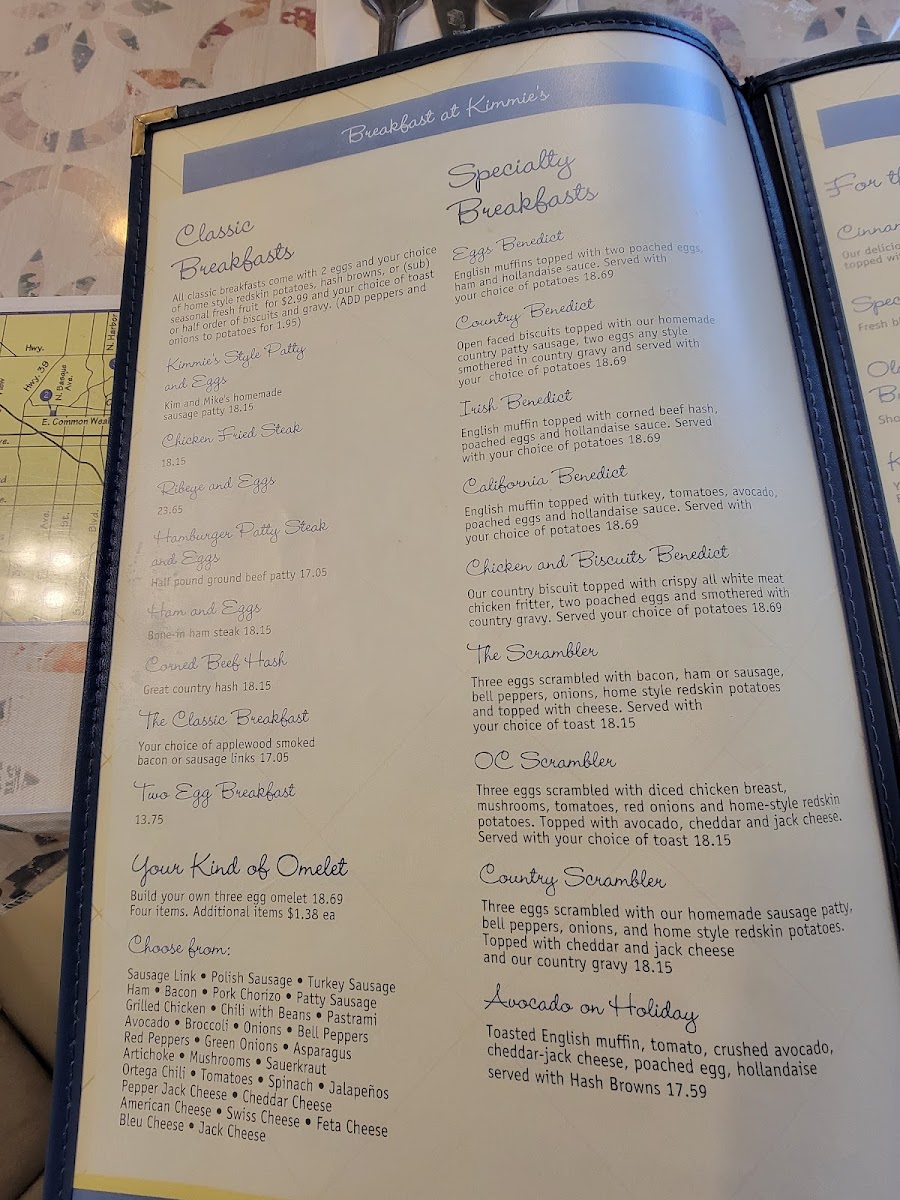 Breakfast at Kimmie's
Classic
Breakfasts
All classic breakfasts come with 2 eggs and your choice
of home style redskin potatoes, hash browns, or (sub)
seasonal fresh fruit for $2.99 and your choice of toast
or half order of biscuits and gravy. (ADD peppers and
onions to potatoes for 1.95)
Kimmie's Style Patty
and Eggs
Kim and Mike's homemade
sausage patty 18.15
Chicken Fried Steak
18.15
Ribeye and Eggs
23.65
Hamburger Patty Steak
and Eggs
Half pound ground beef patty 17.05
Ham and Eggs
Bone-in ham steak 18.15
Corned Beef Hash
Great country hash 18.15
The Classic Breakfast
Your choice of applewood smoked
bacon or sausage links 17.05
Two Egg Breakfast
13.75
Your Kind of Omelet
Build your own three egg omelet 18.69
Four items. Additional items $1.38 ea
Choose from:
Sausage Link • Polish Sausage • Turkey Sausage
Ham • Bacon • Pork Chorizo • Patty Sausage
Grilled Chicken • Chili with Beans • Pastrami
Avocado • Broccoli • Onions • Bell Peppers
Red Peppers • Green Onions • Asparagus
Artichoke • Mushrooms • Sauerkraut
Ortega Chili • Tomatoes • Spinach • Jalapeños
Pepper Jack Cheese • Cheddar Cheese
American Cheese • Swiss Cheese • Feta Cheese
Bleu Cheese • Jack Cheese
Specialty
Breakfasts
Eggs Benedict
English muffins topped with two poached eggs,
ham and hollandaise sauce. Served with
your choice of potatoes 18.69
Country Benedict
Open faced biscuits topped with our homemade
country patty sausage, two eggs any style
smothered in country gravy and served with
your choice of potatoes 18.69
Irish Benedict
English muffin topped with corned beef hash,
poached eggs and hollandaise sauce. Served
with your choice of potatoes 18.69
California Benedict
English muffin topped with turkey, tomatoes, avocado,
poached eggs and hollandaise sauce. Served with
your choice of potatoes 18.69
Chicken and Biscuits Benedict
Our country biscuit topped with crispy all white meat
chicken fritter, two poached eggs and smothered with
country gravy. Served your choice of potatoes 18.69
The Scrambler
Three eggs scrambled with bacon, ham or sausage,
bell peppers, onions, home style redskin potatoes
and topped with cheese. Served with
your choice of toast 18.15
OC Scrambler
Three eggs scrambled with diced chicken breast,
mushrooms, tomatoes, red onions and home-style redskin
potatoes. Topped with avocado, cheddar and jack cheese.
Served with your choice of toast 18.15
Country Scrambler
Three eggs scrambled with our homemade sausage patty,
bell peppers, onions, and home style redskin potatoes.
Topped with cheddar and jack cheese
and our country gravy 18.15
Avocado on Holiday
Toasted English muffin, tomato, crushed avocado,
cheddar-jack cheese, poached egg, hollandaise
served with Hash Browns 17.59
For
Our
topped
Fresh
Hwy.
Hwy. 39
N. Basque
Ave.
N. Harbor
E. Common
Ave.
St.
Blvd.